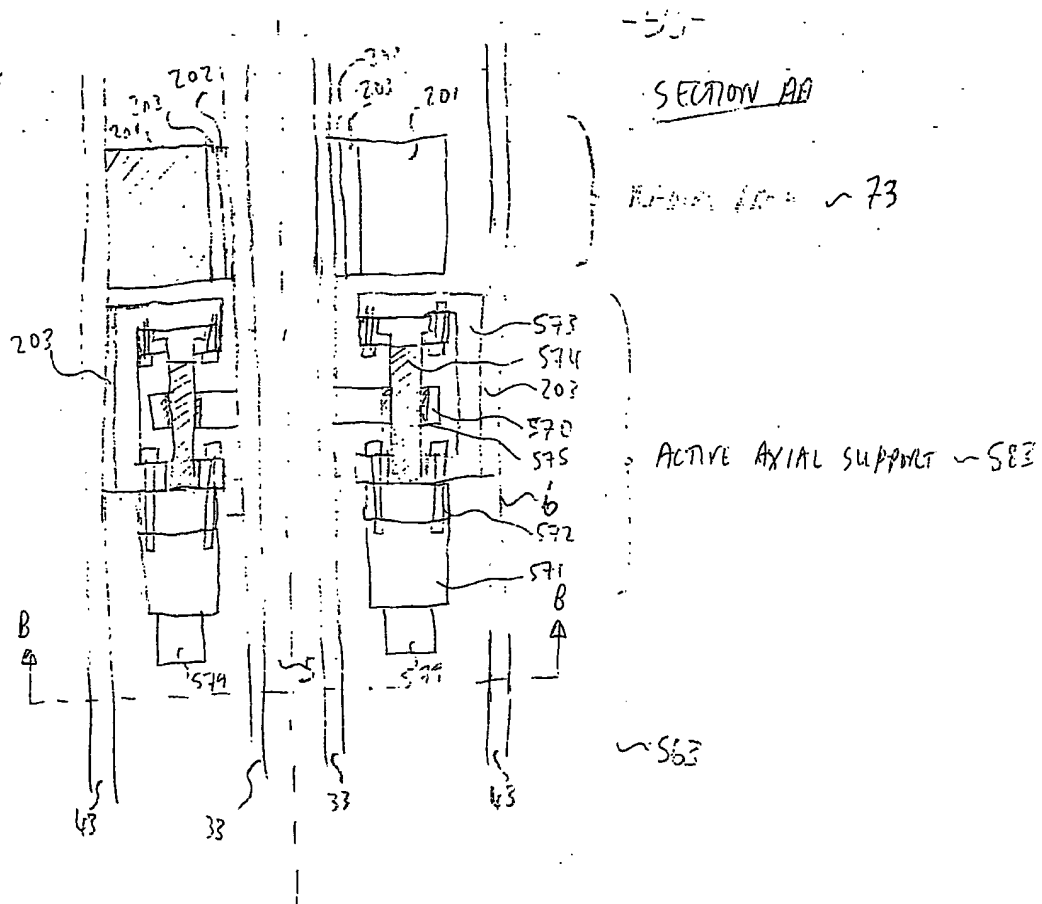 SECTION AA
202
203
201
203
201
73
573
574
203
203
570
575
ACTIVE AXIAL SUPPORT ~ 583
6
572
571
B
B
579
5
579
~ 563
43
33
33
43